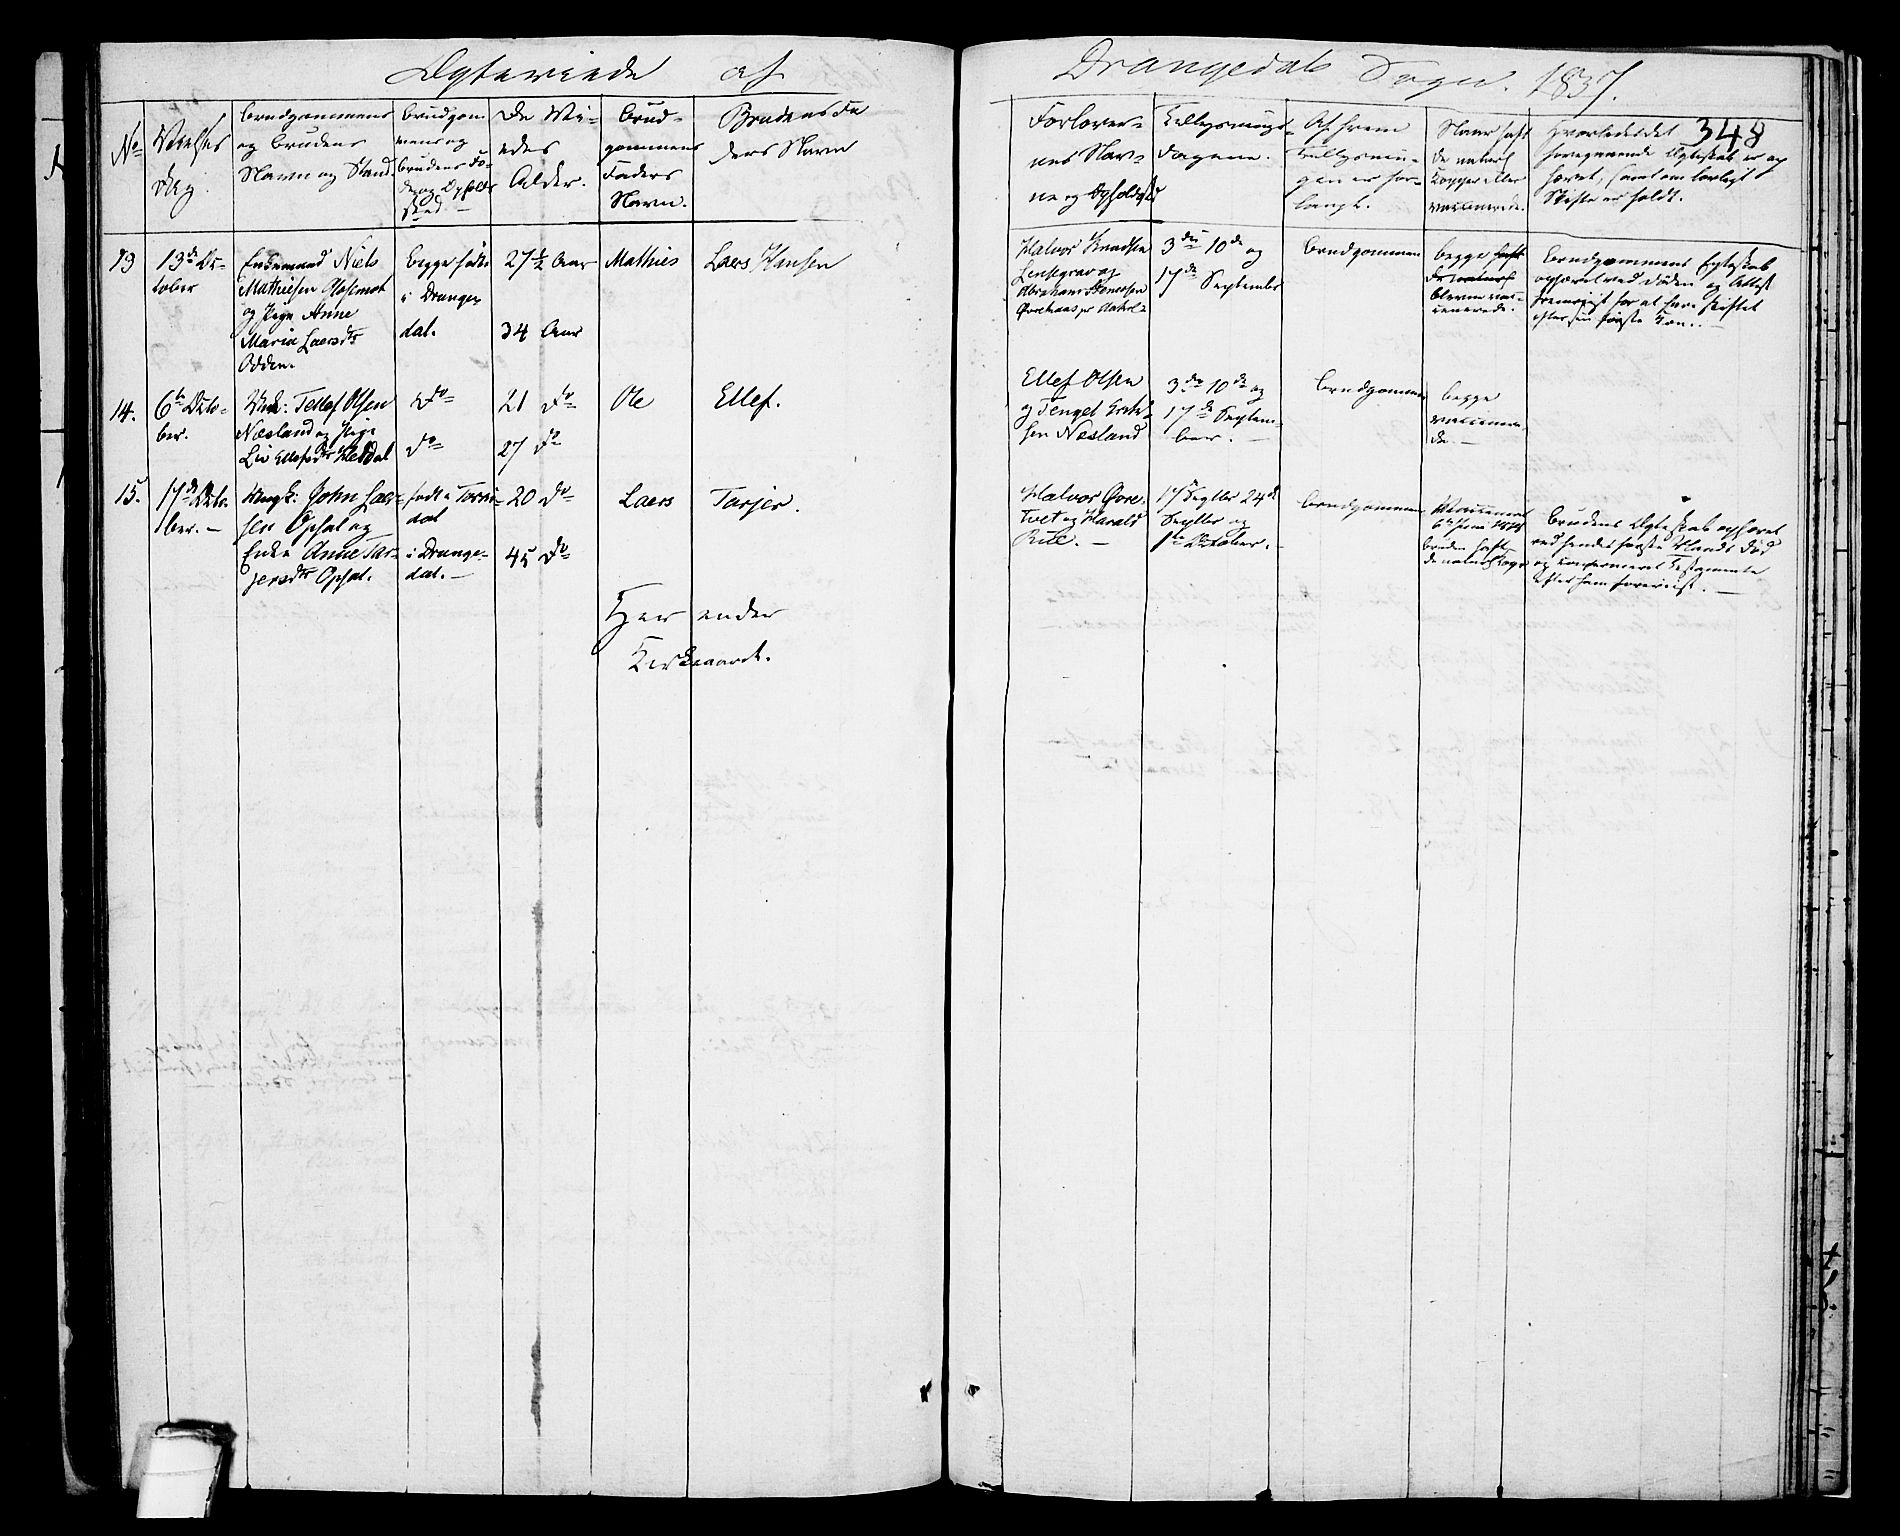 Ægteviede af Drangedals Sogn. 1837.
348
No
Vielses
Dag.
Brudgommens
og Brudens
Navn og Stand.
Brudgom
mens og
Brudens Fø-
de og Opholds
sted.
De Vi-
edes
Alder.
Brud-
gommens
Faders
Navn.
Brudens Fa
ders Navn
Forlover-
nes Nav-
ne og Opholdsted
Tillysnings-
dagene.
Af hvem
Tillysnin-
gen er for-
langt.
Naar haft
de naturl
Kopper eller
vaccinerede.
Hvorledes det
foregaaende Ægteskab er op
hævet, samt om lovligt
Skifte er holdt.
13
13de Oc-
tober
Enkemand Niels
Mathisen
og Pige Anne
Maria Laersdtr
Odden.
Begge fødte
i Drange
dal.
27 1/2 Aar
34 Aar
Mathies
Laers Hansen
Halvor Knudsen
og
Abraham
3die 10de og
17de September
Brudgommen
begge
blevne vac-
cinerede.
Brudgommens Egteskab
ophævet ved Døden og Attest
fremviist for at have skiftet
efter sin første Kone.
14.
6te Octo-
ber.
Tellef Olsen
Næsland og Pige
Liv Ellefsdtr Heldal
Do
Do
21 Do
27 Do
Ole
Ellef.
Ellef Olsen
og Tengel
sen Næsland
3die 10de og
17de Septem-
ber.
Brudgommen
begge
vaccinere-
de.
15.
17de Octo-
ber.
Ungk: John Laer-
sen Opsal og
Enke Anne Tar-
jersdtr Opsal.
født i Torris-
dal
i Drange-
dal.
20 Do
45 Do
Laers
Tarjer.
Halvor Gvre-
tvet og Harald
17de Septbr 24de
Septbr og
1ste October.
Brudgommen
Vaccineret
bruden haft
de naturl Kop
Brudens Ægteskab ophævet
ved hendes første Mands Død
og confirmeret Testamente
efter ham foreviist.
Her ender
Kirkeaaret.